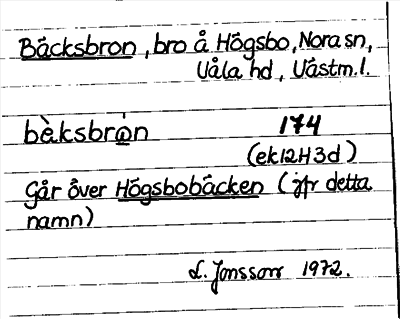 Bäcksbron, bro å Högsbo, Nora sn,
Våla hd, Västm. l.
bèksbrȯ̀n 174
(ek12H3d)
Går över Högsbobäcken (jfr detta
namn)
L. Jonsson 1972.